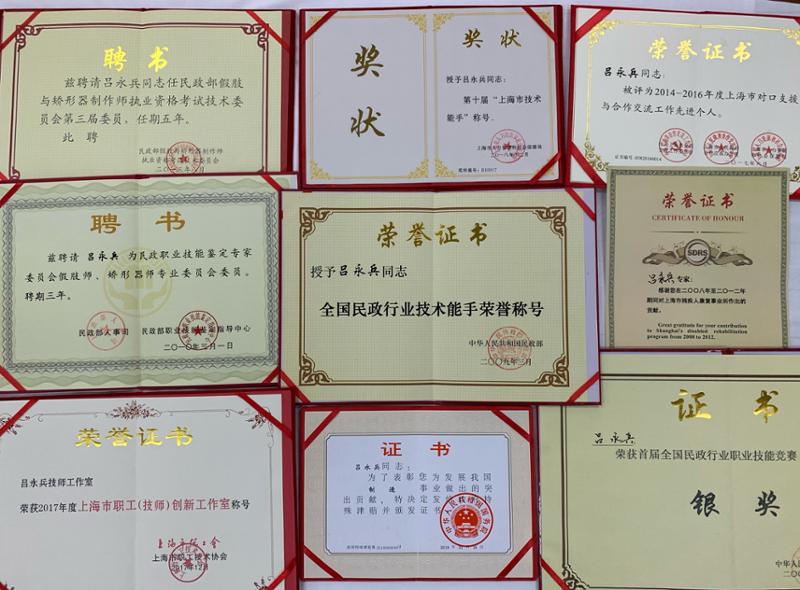 聘书
兹聘请吕永兵同志任民政部假肢
与矫形器制作师执业资格考试技术委
员会第三届委员，任期五年。
此聘
民政部假肢与矫形器制作师
执业资格考试技术委员会
奖状
奖状
授予吕永兵同志：
第十届“上海市技术
能手”称号。
荣誉证书
吕永兵同志：
被评为2014-2016年度上海市对口支援
与合作交流工作先进个人。
聘书
兹聘请 吕永兵 为民政职业技能鉴定专家
委员会假肢师、矫形器师专业委员会委员。
聘期三年。
民政部人事司 民政部职业技能鉴定指导中心
二〇一〇年三月一日
荣誉证书
授予吕永兵同志
全国民政行业技术能手荣誉称号
中华人民共和国民政部
二〇〇九年三月
荣誉证书
CERTIFICATE OF HONOUR
SDRS
吕永兵专家：
感谢您在二〇〇八年至二〇一二年
期间对上海市残疾人康复事业所作出的
贡献。
Great gratitude for your contribution
to Shanghai's disabled rehabilitation
program from 2008 to 2012.
荣誉证书
吕永兵技师工作室
荣获2017年度上海市职工(技师)创新工作室称号
上海市总工会
上海市职工技术协会
2017年12月
证书
吕永兵同志：
为了表彰您为发展我国
制造 事业做出的突
出贡献，特决定发给政府特
殊津贴并颁发证书
中华人民共和国国务院
证书
吕永兵
荣获首届全国民政行业职业技能竞赛
银奖
中华人
二〇〇